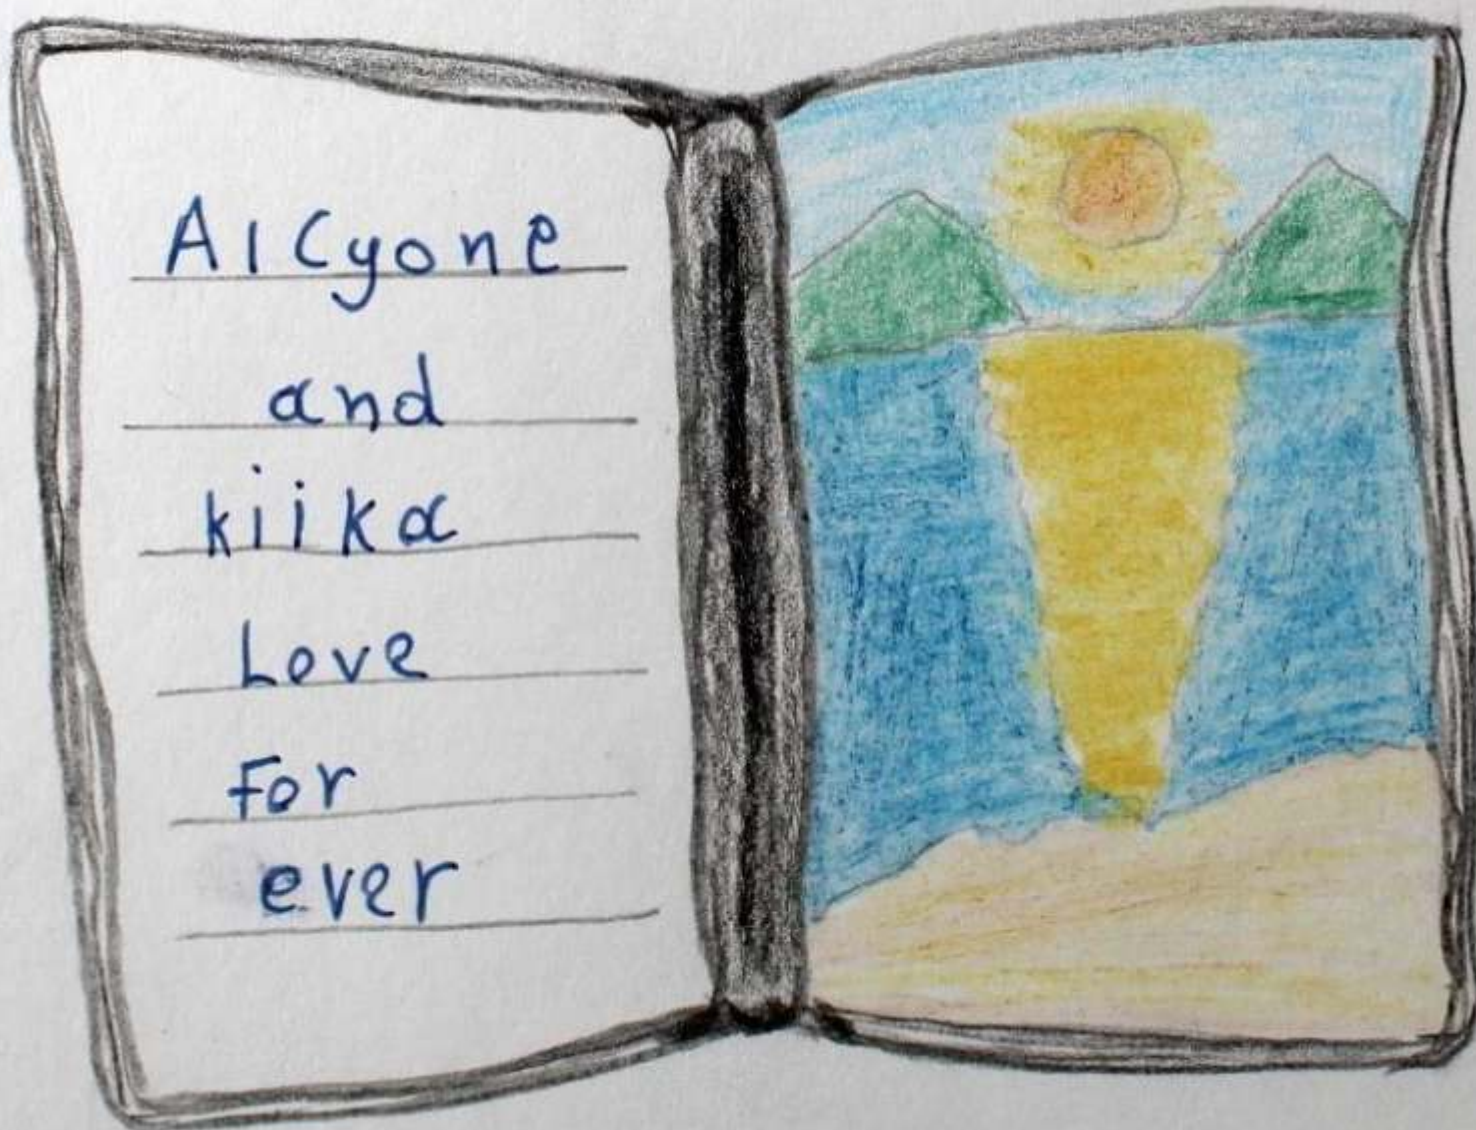 Alcyone
and
kiika
Love
For
ever